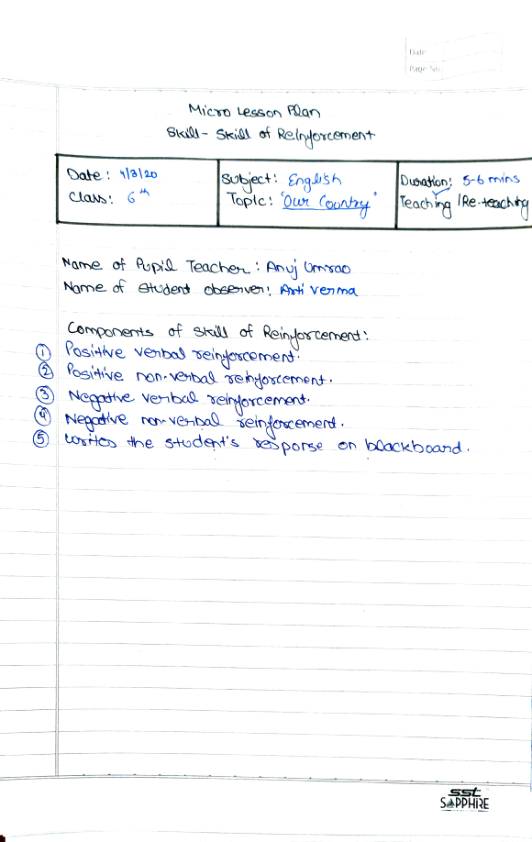 Date
Page No.
Micro Lesson Plan
Skill - Skill of Reinforcement
Date : 4/3/20
Class: 6th
Subject: English
Topic: "Our Country"
Duration: 5-6 mins
Teaching / Re-teaching
Name of Pupil Teacher : Anuj Umrao
Name of Student observer: Arti Verma
Components of Skill of Reinforcement:
① Positive verbal reinforcement.
② Positive non-verbal reinforcement.
③ Negative verbal reinforcement.
④ Negative non-verbal reinforcement.
⑤ Writes the student's response on blackboard.
sst
SAPPHIRE